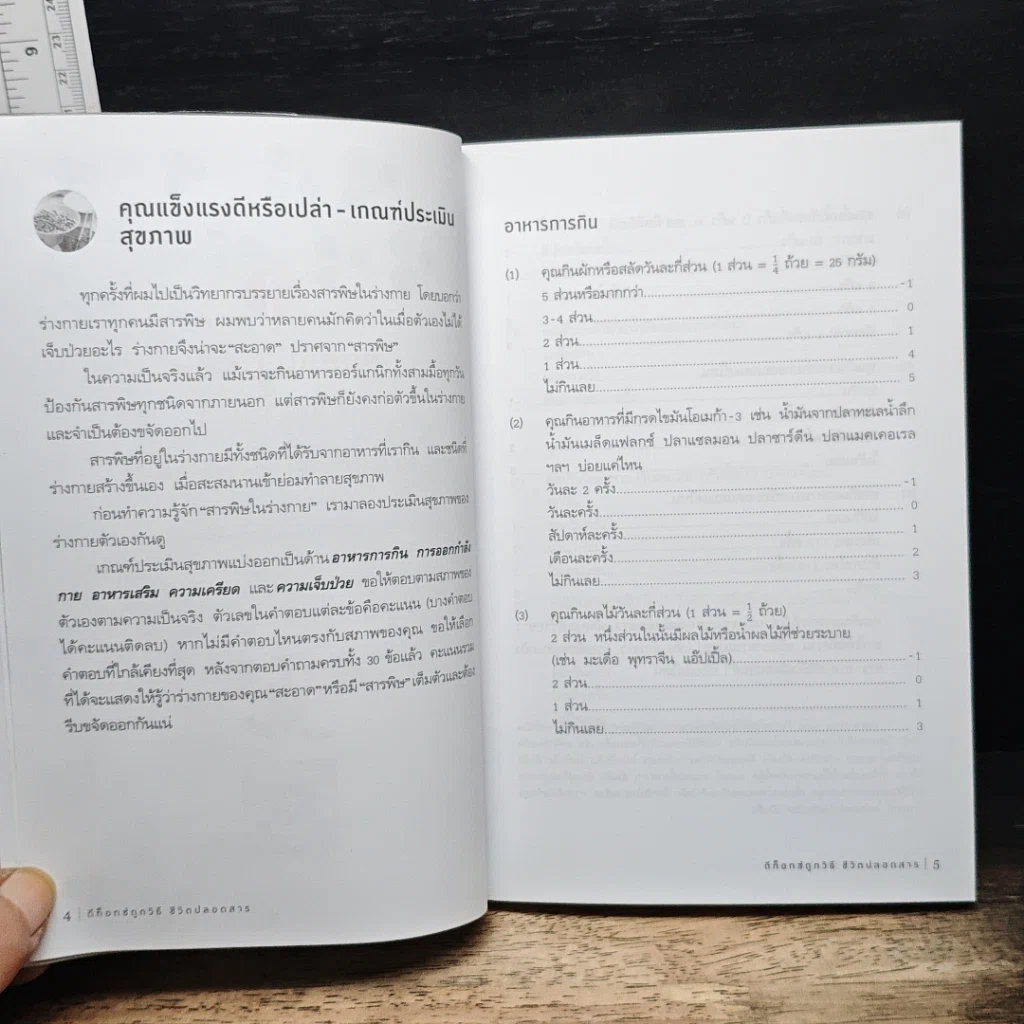 9
24
23
22
คุณแข็งแรงดีหรือเปล่า - เกณฑ์ประเมิน
สุขภาพ
ทุกครั้งที่ผมไปเป็นวิทยากรบรรยายเรื่องสารพิษในร่างกาย โดยบอกว่า
ร่างกายเราทุกคนมีสารพิษ ผมพบว่าหลายคนมักคิดว่าในเมื่อตัวเองไม่ได้
เจ็บป่วยอะไร ร่างกายจึงน่าจะ“สะอาด” ปราศจาก“สารพิษ”
ในความเป็นจริงแล้ว แม้เราจะกินอาหารออร์แกนิกทั้งสามมื้อทุกวัน
ป้องกันสารพิษทุกชนิดจากภายนอก แต่สารพิษก็ยังคงก่อตัวขึ้นในร่างกาย
และจำเป็นต้องขจัดออกไป
สารพิษที่อยู่ในร่างกายมีทั้งชนิดที่ได้รับจากอาหารที่เรากิน และชนิดที่
ร่างกายสร้างขึ้นเอง เมื่อสะสมนานเข้าย่อมทำลายสุขภาพ
ก่อนทำความรู้จัก“สารพิษในร่างกาย” เรามาลองประเมินสุขภาพของ
ร่างกายตัวเองกันดู
เกณฑ์ประเมินสุขภาพแบ่งออกเป็นด้าน อาหารการกิน การออกกำลัง
กาย อาหารเสริม ความเครียด และความเจ็บป่วย ขอให้ตอบตามสภาพของ
ตัวเองตามความเป็นจริง ตัวเลขในคำตอบแต่ละข้อคือคะแนน (บางคำตอบ
ได้คะแนนติดลบ) หากไม่มีคำตอบไหนตรงกับสภาพของคุณ ขอให้เลือก
คำตอบที่ใกล้เคียงที่สุด หลังจากตอบคำถามครบทั้ง 30 ข้อแล้ว คะแนนรวม
ที่ได้จะแสดงให้รู้ว่าร่างกายของคุณ“สะอาด”หรือมี“สารพิษ”เต็มตัวและต้อง
รีบขจัดออกกันแน่
4 | ดีท็อกซ์ถูกวิธี ชีวิตปลอดสาร
อาหารการกิน
(1) คุณกินผักหรือสลัดวันละกี่ส่วน (1 ส่วน = 1/4 ถ้วย = 25 กรัม)
5 ส่วนหรือมากกว่า.....-1
3-4 ส่วน.....0
2 ส่วน.....1
1 ส่วน.....4
ไม่กินเลย.....5
(2) คุณกินอาหารที่มีกรดไขมันโอเมก้า-3 เช่น น้ำมันจากปลาทะเลน้ำลึก
น้ำมันเมล็ดแฟลกซ์ ปลาแซลมอน ปลาซาร์ดีน ปลาแมคเคอเรล
ฯลฯ บ่อยแค่ไหน
วันละ 2 ครั้ง.....-1
วันละครั้ง.....0
สัปดาห์ละครั้ง.....1
เดือนละครั้ง.....2
ไม่กินเลย.....3
(3) คุณกินผลไม้วันละกี่ส่วน (1 ส่วน = 1/2 ถ้วย)
2 ส่วน หนึ่งส่วนในนั้นมีผลไม้หรือน้ำผลไม้ที่ช่วยระบาย
(เช่น มะเดื่อ พุทราจีน แอ๊ปเปิ้ล).....-1
2 ส่วน.....0
1 ส่วน.....1
ไม่กินเลย.....3
ดีท็อกซ์ถูกวิธี ชีวิตปลอดสาร | 5